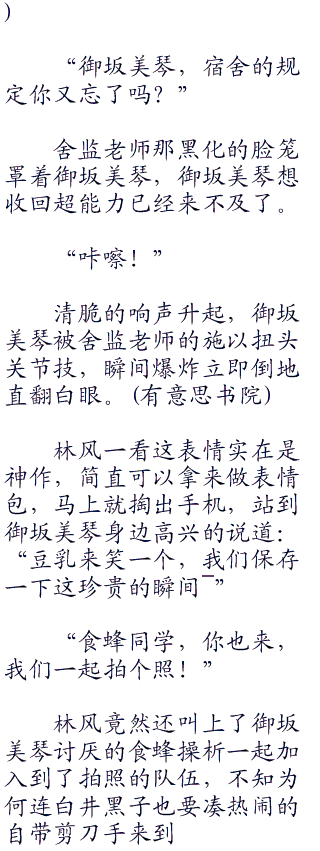 )
“御坂美琴，宿舍的规
定你又忘了吗？”
舍监老师那黑化的脸笼
罩着御坂美琴，御坂美琴想
收回超能力已经来不及了。
“咔嚓！”
清脆的响声升起，御坂
美琴被舍监老师的施以扭头
关节技，瞬间爆炸立即倒地
直翻白眼。(有意思书院)
林风一看这表情实在是
神作，简直可以拿来做表情
包，马上就掏出手机，站到
御坂美琴身边高兴的说道：
“豆乳来笑一个，我们保存
一下这珍贵的瞬间¯”
“食蜂同学，你也来，
我们一起拍个照！”
林风竟然还叫上了御坂
美琴讨厌的食蜂操析一起加
入到了拍照的队伍，不知为
何连白井黑子也要凑热闹的
自带剪刀手来到